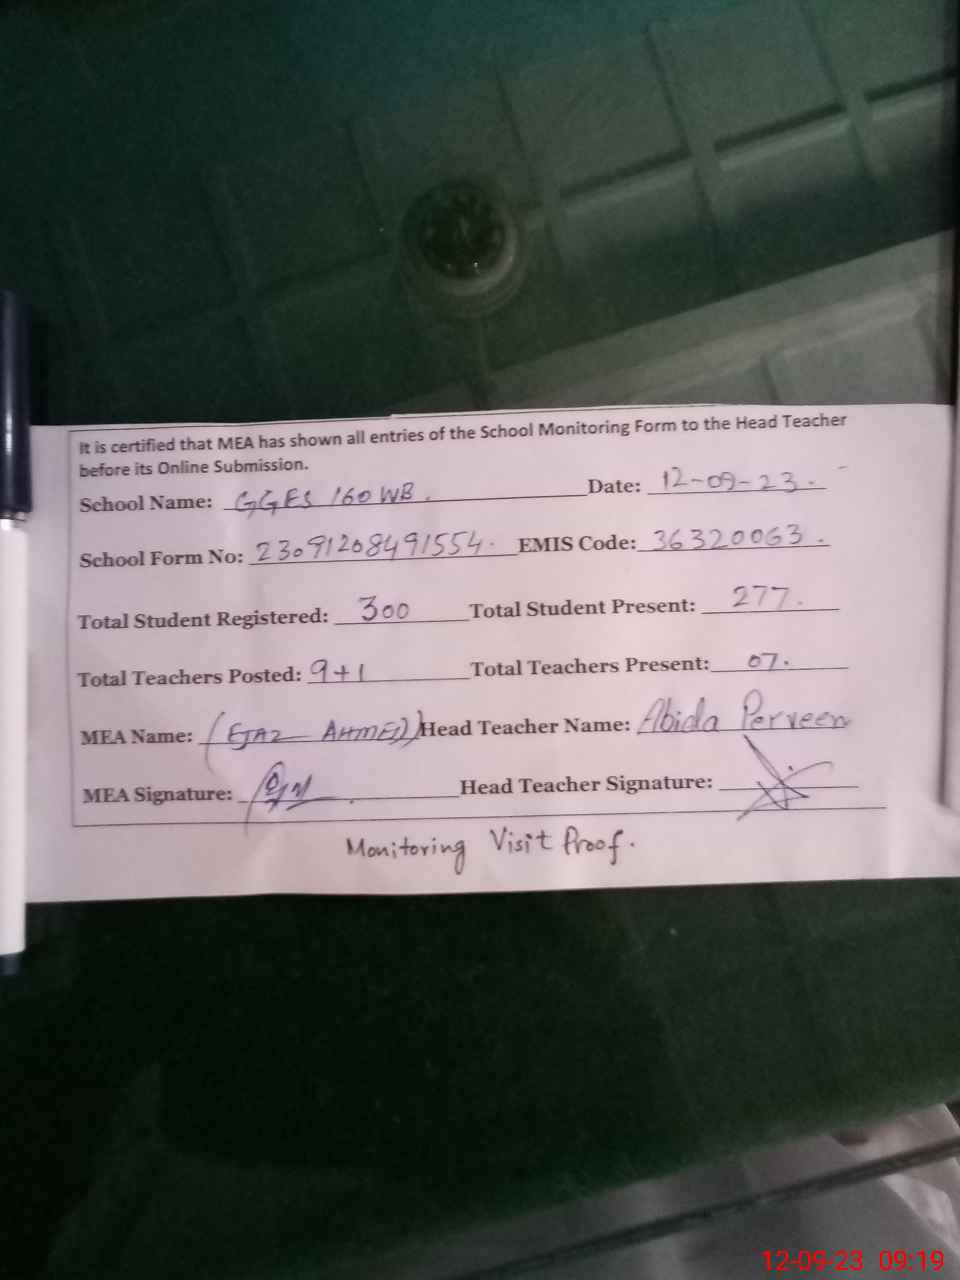 It is certified that MEA has shown all entries of the School Monitoring Form to the Head Teacher
before its Online Submission.
School Name: GGES 160 WB. Date: 12-09-23.
School Form No: 23091208491554. EMIS Code: 36320063.
Total Student Registered: 300 Total Student Present: 277.
Total Teachers Posted: 9+1 Total Teachers Present: 07.
MEA Name: (EJAZ AHMED) Head Teacher Name: Abida Perveen
MEA Signature: Head Teacher Signature:
Monitoring Visit Proof.
12-09-23 09:19